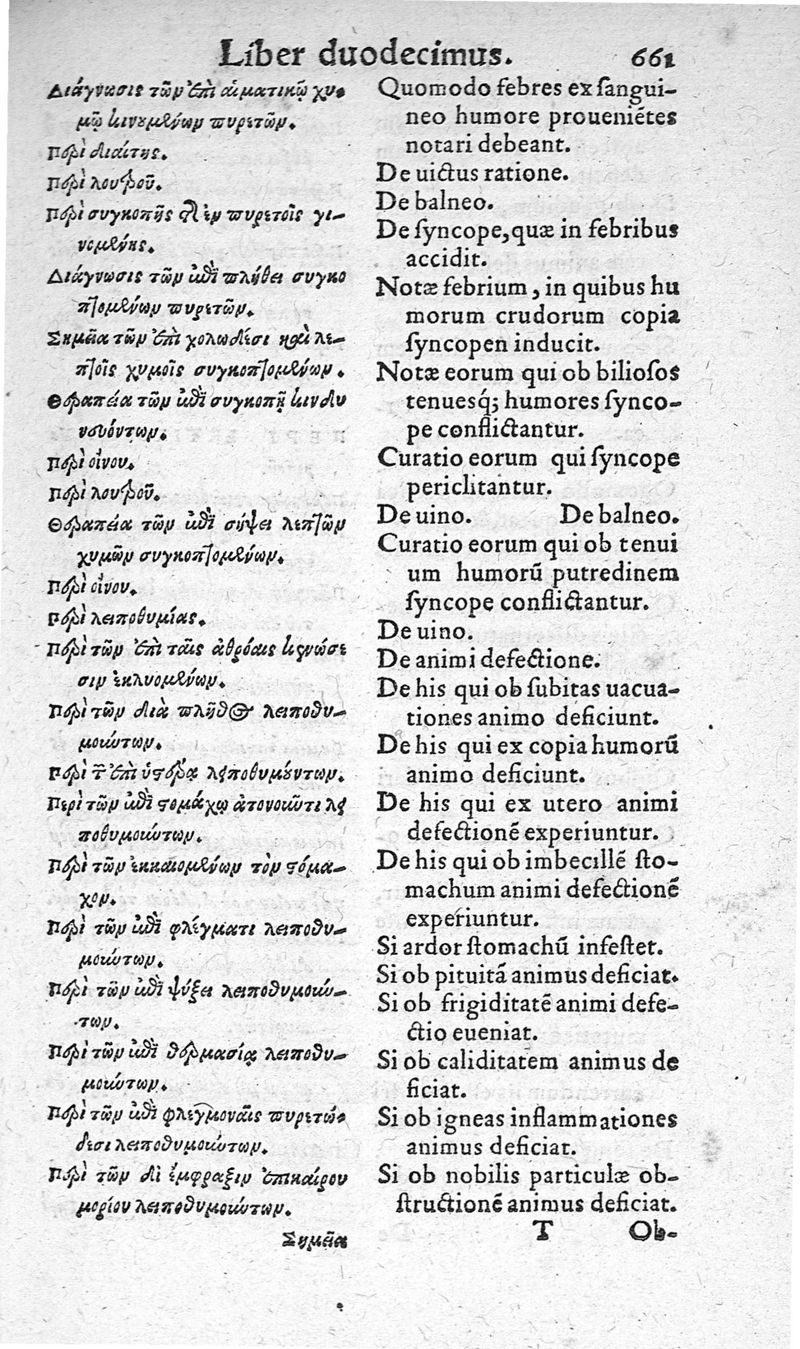 Liber duodecimus. 661
Διάγνωσις τῶν ἐπὶ αἱματικῷ χυ-
μῷ κινουμένων πυρετῶν.
Περὶ διαίτης.
Περὶ λουτροῦ.
Περὶ συγκοπῆς τῆς ἐν πυρετοῖς γι-
νομένης.
Διάγνωσις τῶν ἐπὶ πλήθει συγκο
πτομένων πυρετῶν.
Σημεῖα τῶν ἐπὶ χολώδεσι καὶ λε-
πτοῖς χυμοῖς συγκοπτομένων.
Θεραπεία τῶν ἐπὶ συγκοπῇ κινδυ
νευόντων.
Περὶ οἴνου.
Περὶ λουτροῦ.
Θεραπεία τῶν ἐπὶ σήψει λεπτῶν
χυμῶν συγκοπτομένων.
Περὶ οἴνου.
Περὶ λειποθυμίας.
Περὶ τῶν ἐπὶ ταῖς ἀθρόαις κενώσε
σιν ἐκλυομένων.
Περὶ τῶν διὰ πλῆθος λειποθυ-
μούντων.
Περὶ τ ἐπὶ ὑστέρᾳ λειποθυμούντων.
Περὶ τῶν ἐπὶ στομάχῳ ἀτονοῦντι λει
ποθυμούντων.
Περὶ τῶν ἐκκαιομένων τὸν στόμα-
χον.
Περὶ τῶν ἐπὶ φλέγματι λειποθυ-
μούντων.
Περὶ τῶν ἐπὶ ψύξει λειποθυμούν-
των.
Περὶ τῶν ἐπὶ θερμασίᾳ λειποθυ-
μούντων.
Περὶ τῶν ἐπὶ φλεγμοναῖς πυρετώ-
δεσι λειποθυμούντων.
Περὶ τῶν δι ἔμφραξιν ἐπικαίρου
μορίου λειποθυμούντων.
Σημεῖα
Quomodo febres ex ſangui-
neo humore proueniẽtes
notari debeant.
De uictus ratione.
De balneo.
De ſyncope, quæ in febribus
accidit.
Notæ febrium, in quibus hu
morum crudorum copia
ſyncopen inducit.
Notæ eorum qui ob bilioſos
tenuesq́; humores ſynco-
pe conflictantur.
Curatio eorum qui ſyncope
periclitantur.
De uino. De balneo.
Curatio eorum qui ob tenui
um humorũ putredinem
ſyncope conflictantur.
De uino.
De animi defectione.
De his qui ob ſubitas uacua-
tiones animo deficiunt.
De his qui ex copia humorũ
animo deficiunt.
De his qui ex utero animi
defectionẽ experiuntur.
De his qui ob imbecillẽ ſto-
machum animi defectionẽ
experiuntur.
Si ardor ſtomachũ infeſtet.
Si ob pituitã animus deficiat.
Si ob frigiditatẽ animi defe-
ctio eueniat.
Si ob caliditatem animus de
ficiat.
Si ob igneas inflammationes
animus deficiat.
Si ob nobilis particulæ ob-
ſtructionẽ animus deficiat.
T Ob-